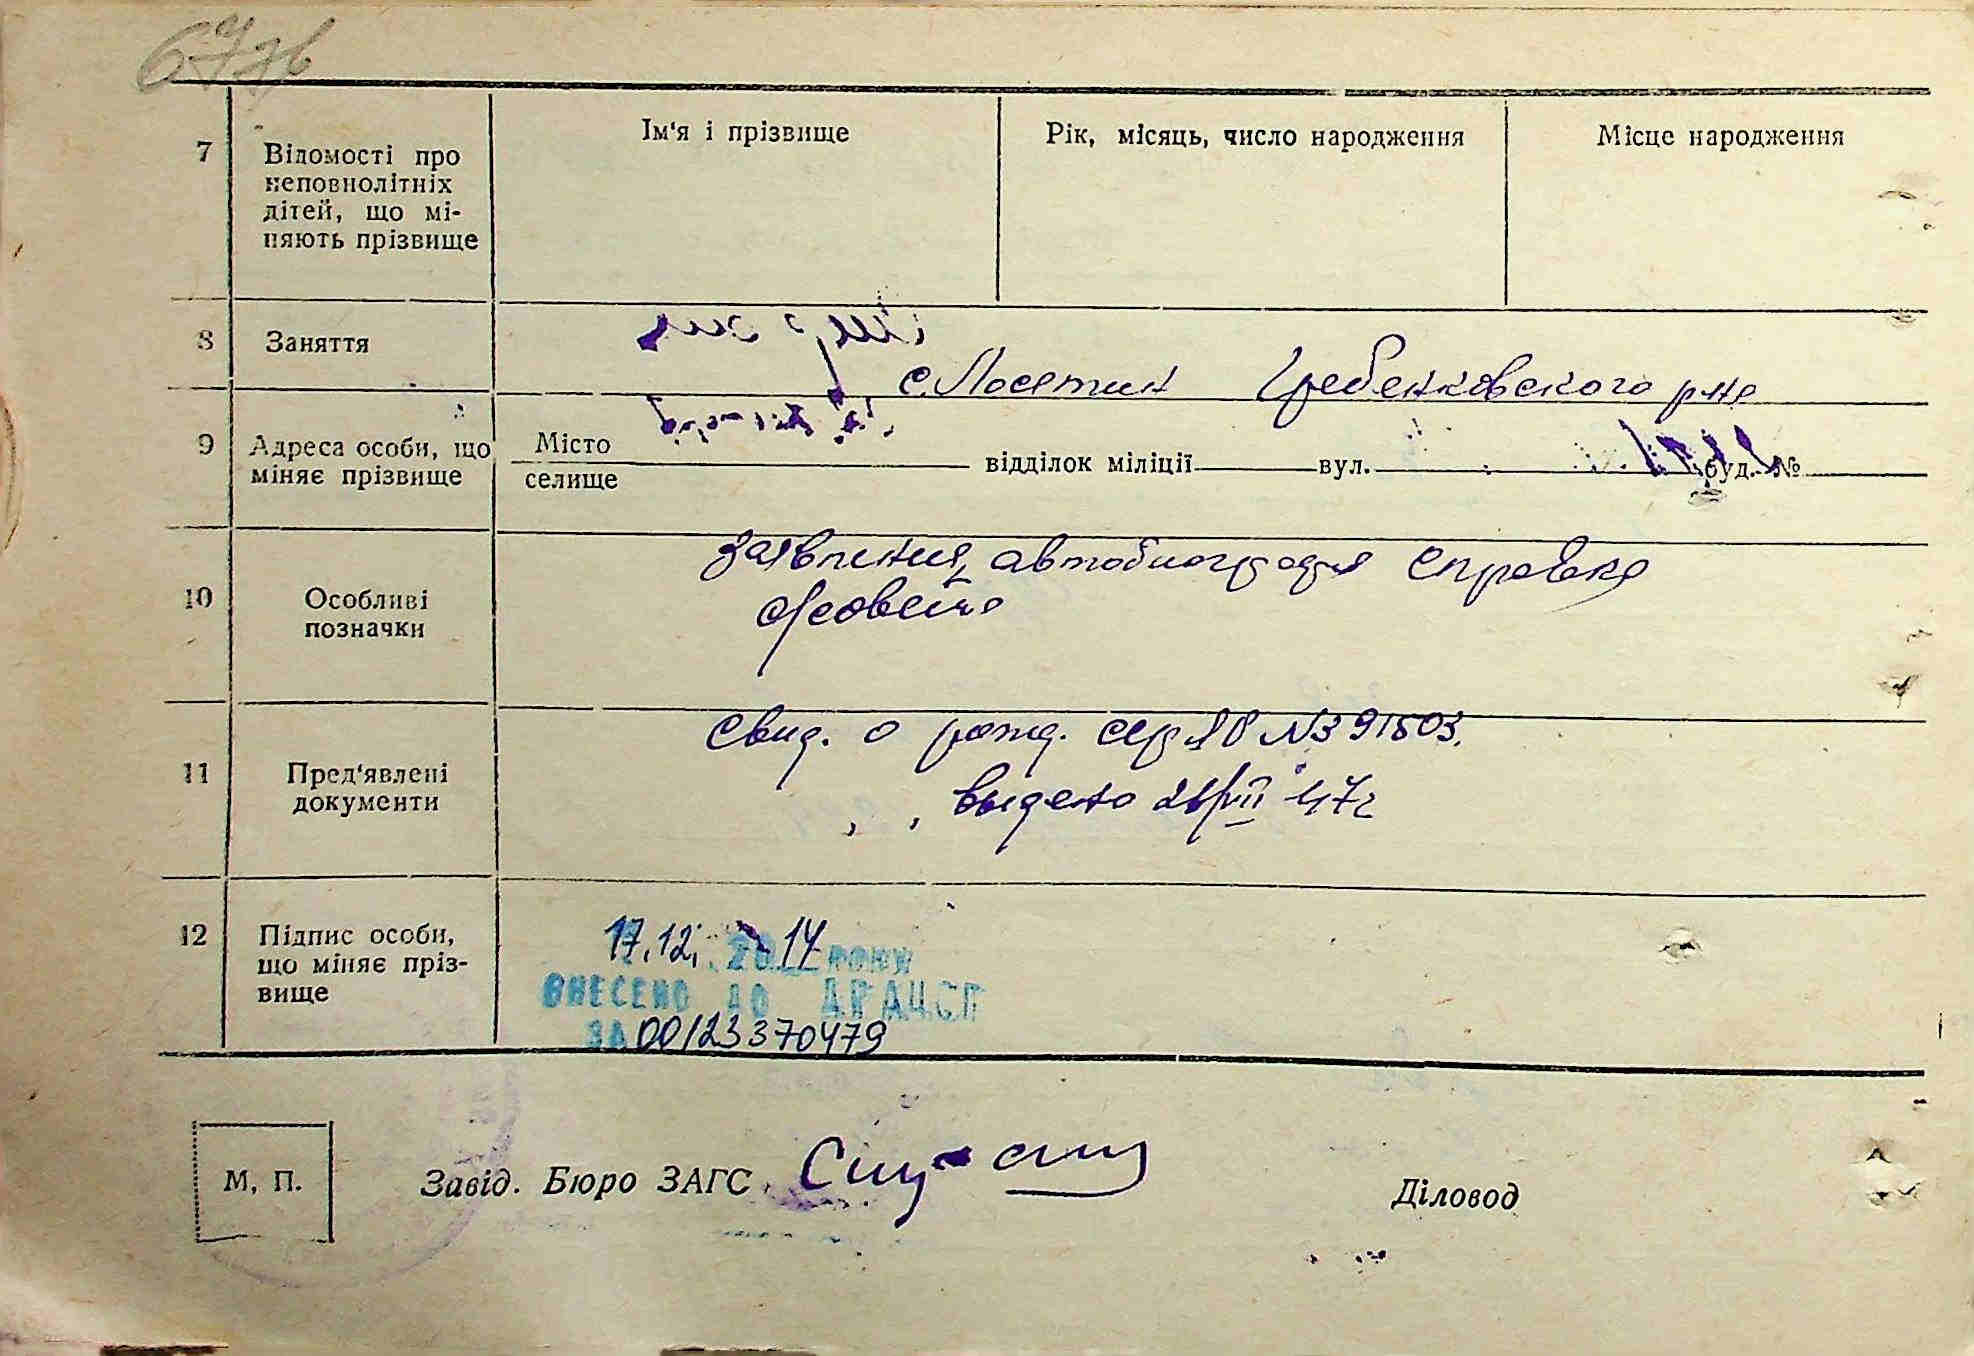 677в
7
Відомості про неповнолітніх дітей, що міняють прізвище
Ім'я і прізвище
Рік, місяць, число народження
Місце народження
8
Заняття
с. Посетин Гребенковского р-на
9
Адреса особи, що міняє прізвище
Місто
селище
відділок міліції
вул.
буд. №
10
Особливі
позначки
заявления, автобиография справка
11
Пред'явлені
документи
Свид. о рожд. сер № 391503.
выдано 21/VII 47г
12
Підпис особи,
що міняє пріз-
вище
17.12. 2014 РОКУ
ВНЕСЕНО ДО ДРАЦСГ
ЗА 00123370479
М. П.
Завід. Бюро ЗАГС
Діловод